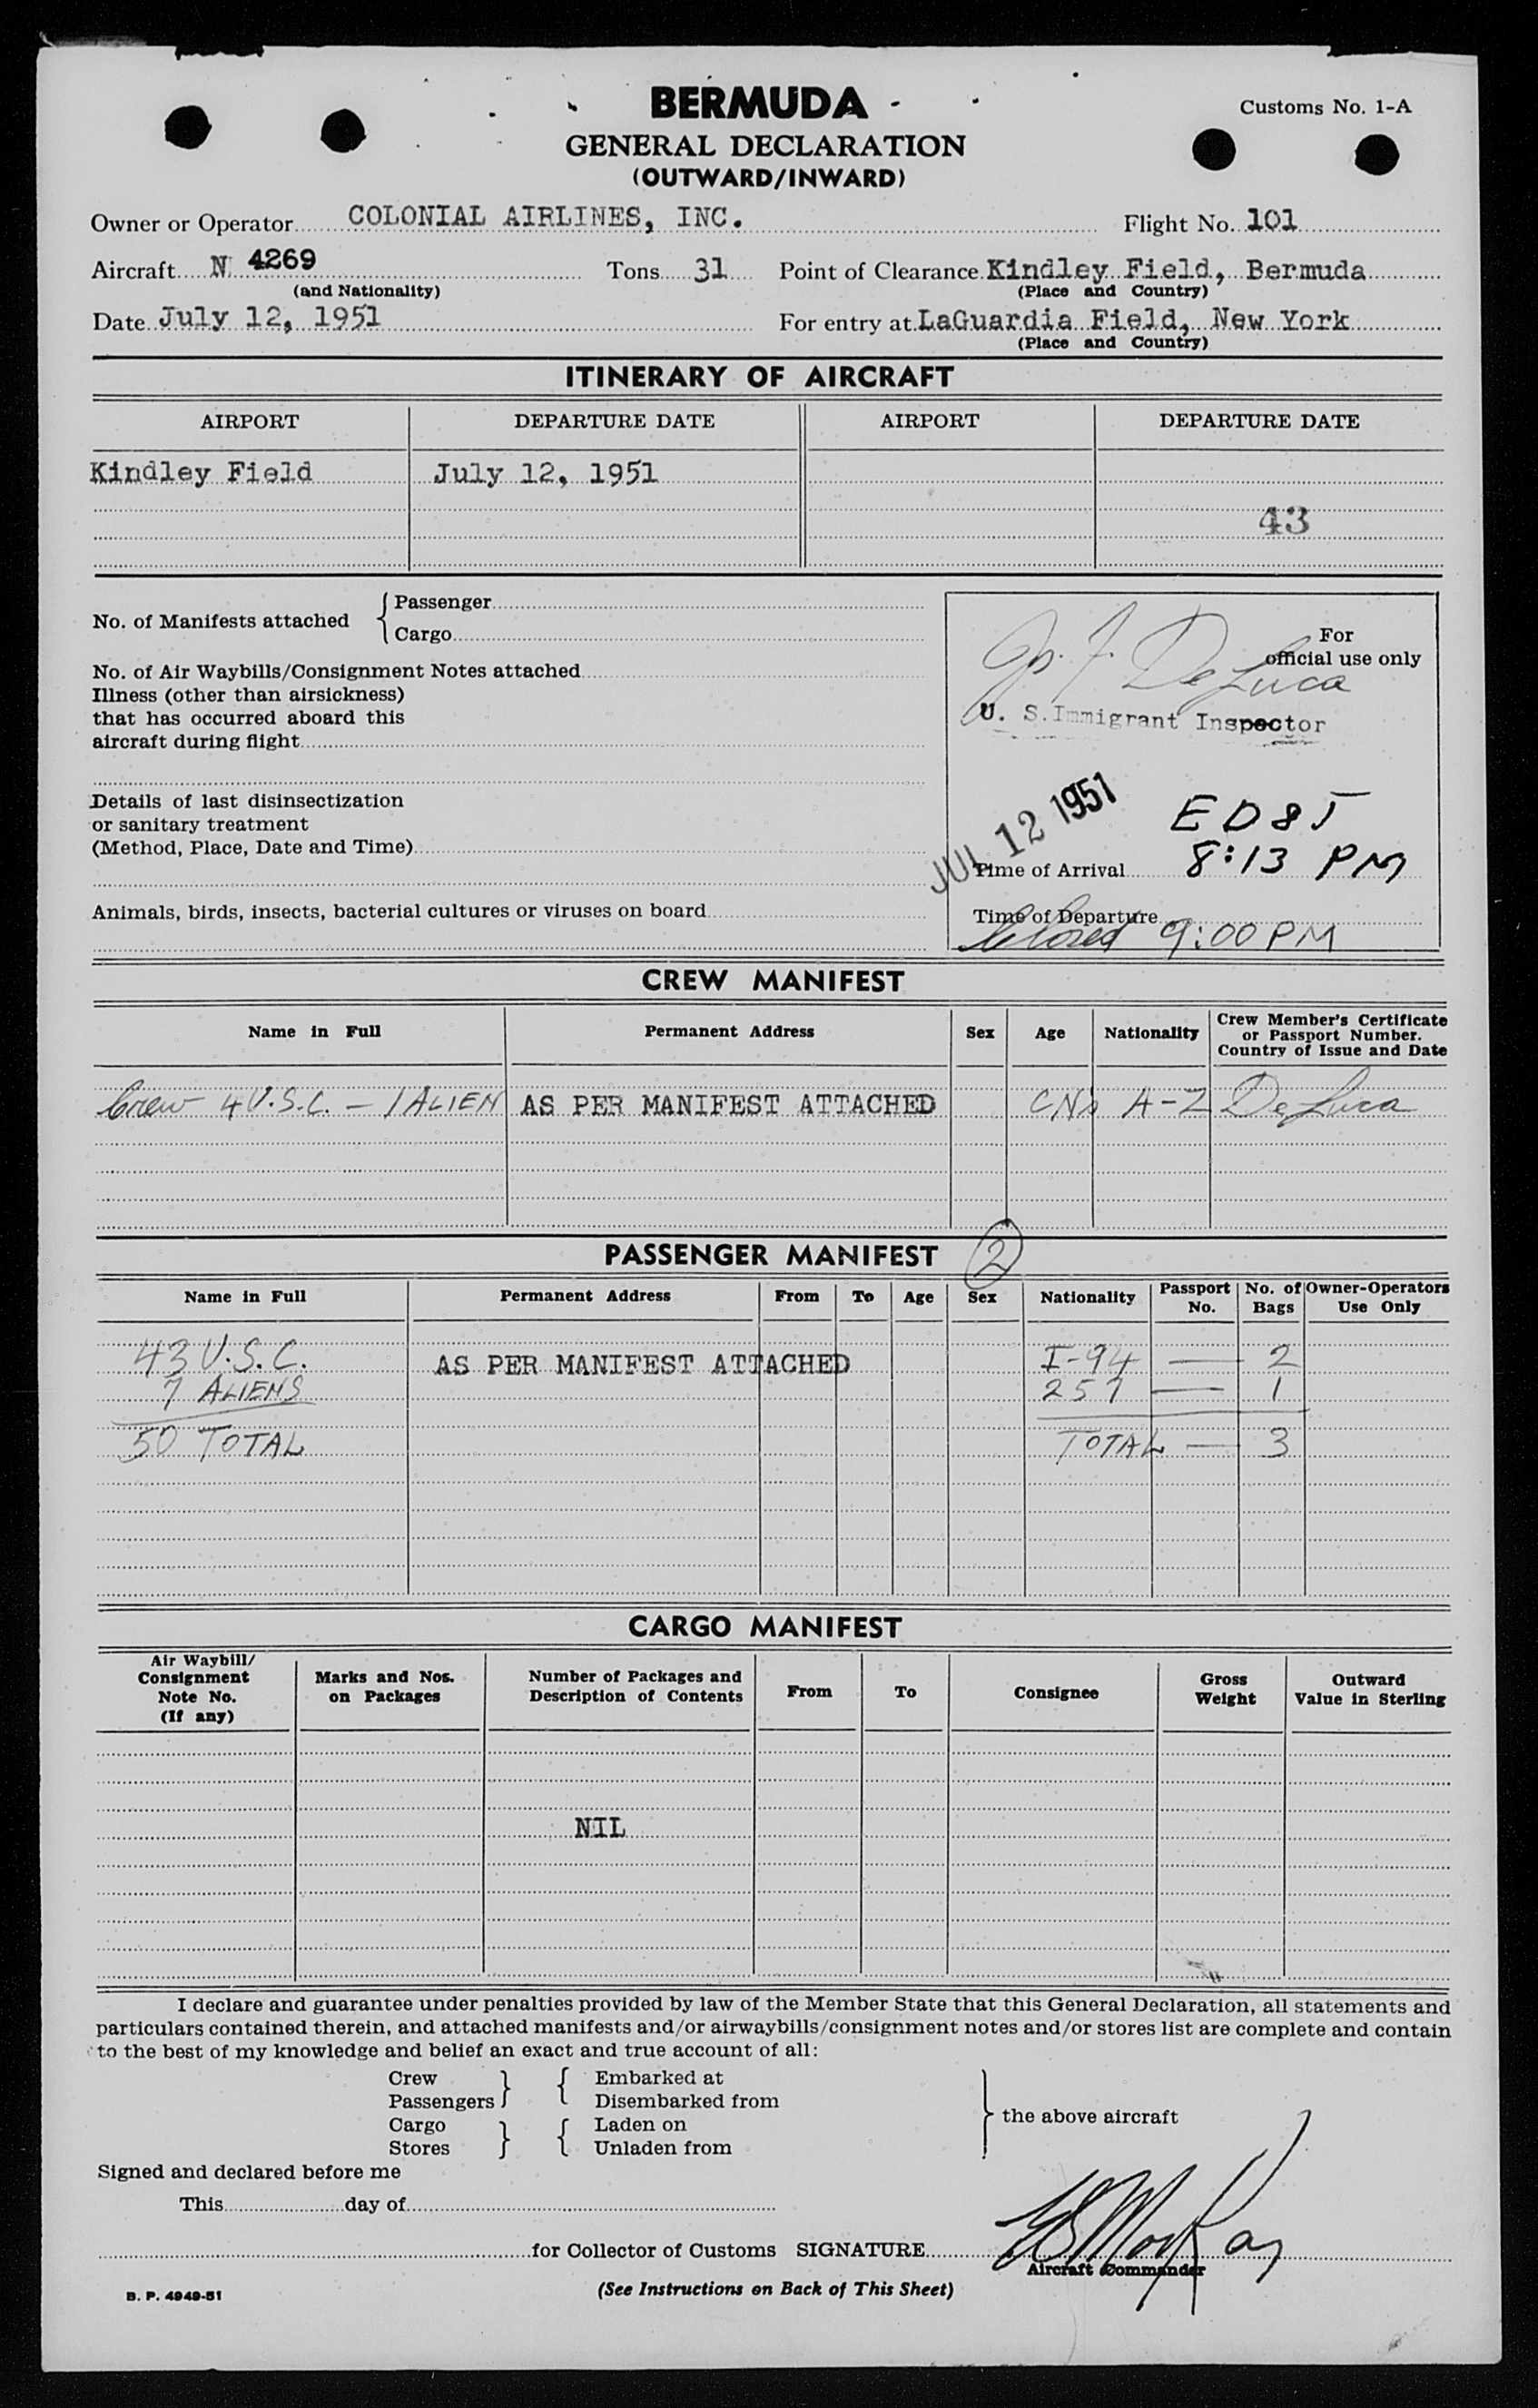 BERMUDA
Customs No. 1-A
GENERAL DECLARATION
(OUTWARD/INWARD)
Owner or Operator COLONIAL AIRLINES, INC. Flight No. 101
Aircraft N 4269 Tons 31 Point of Clearance Kindley Field, Bermuda
(and Nationality) (Place and Country)
Date July 12, 1951 For entry at LaGuardia Field, New York
(Place and Country)
ITINERARY OF AIRCRAFT
AIRPORT DEPARTURE DATE AIRPORT DEPARTURE DATE
Kindley Field July 12, 1951
43
No. of Manifests attached { Passenger
Cargo
No. of Air Waybills/Consignment Notes attached
Illness (other than airsickness)
that has occurred aboard this
aircraft during flight
Details of last disinsectization
or sanitary treatment
(Method, Place, Date and Time)
Animals, birds, insects, bacterial cultures or viruses on board
For
official use only
De Luca
U. S. Immigrant Inspector
JUL 12 1951
EDST
Time of Arrival 8:13 PM
Time of Departure
Closed 9:00 PM
CREW MANIFEST
Name in Full Permanent Address Sex Age Nationality Crew Member's Certificate
or Passport Number.
Country of Issue and Date
Crew 4 U.S.C. - 1 ALIEN AS PER MANIFEST ATTACHED CNs A-Z De Luca
PASSENGER MANIFEST 2
Name in Full Permanent Address From To Age Sex Nationality Passport No. No. of Bags Owner-Operators Use Only
43 U.S.C. AS PER MANIFEST ATTACHED I-94 — 2
7 ALIENS 257 — 1
50 TOTAL TOTAL — 3
CARGO MANIFEST
Air Waybill/
Consignment
Note No.
(If any)
Marks and Nos.
on Packages
Number of Packages and
Description of Contents
From To Consignee
Gross
Weight
Outward
Value in Sterling
NIL
I declare and guarantee under penalties provided by law of the Member State that this General Declaration, all statements and
particulars contained therein, and attached manifests and/or airwaybills/consignment notes and/or stores list are complete and contain
to the best of my knowledge and belief an exact and true account of all:
Crew } { Embarked at
Passengers Disembarked from
Cargo } { Laden on
Stores Unladen from
} the above aircraft
Signed and declared before me
This day of
for Collector of Customs SIGNATURE
Aircraft Commander
B. P. 4949-51
(See Instructions on Back of This Sheet)